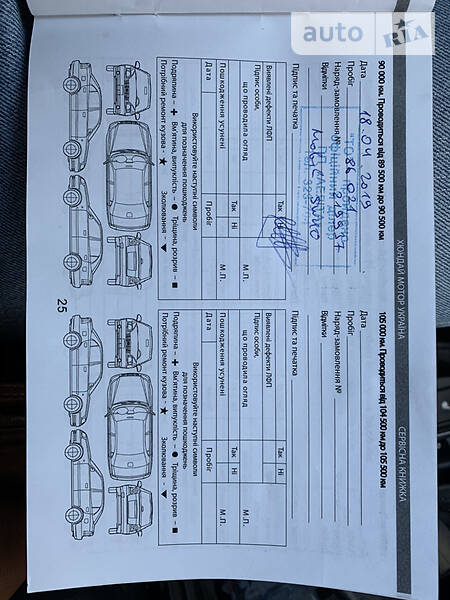 auto RIA
ХЮНДАЙ МОТОР УКРАЇНА
СЕРВІСНА КНИЖКА
90 000 км. Проводиться від 89 500 км до 90 500 км
Дата 18.04 2019
Пробіг
Наряд-замовлення №
Відмітки
Підпис та печатка
Виявлені дефекти ЛФП Так Ні
Підпис особи,
що проводила огляд М.П.
Пошкодження усунені Так Ні
Дата Пробіг М.П.
Використовуйте наступні символи
для позначення пошкоджень
Подряпина – + Вм'ятина, випуклість – ● Тріщина, розрив – ■
Потрібний ремонт кузова - ★ Зколювання - ▼
105 000 км. Проводиться від 104 500 км до 105 500 км
Дата
Пробіг
Наряд-замовлення №
Відмітки
Підпис та печатка
Виявлені дефекти ЛФП Так Ні
Підпис особи,
що проводила огляд М.П.
Пошкодження усунені Так Ні
Дата Пробіг М.П.
Використовуйте наступні символи
для позначення пошкоджень
Подряпина – + Вм'ятина, випуклість – ● Тріщина, розрив – ■
Потрібний ремонт кузова - ★ Зколювання - ▼
25